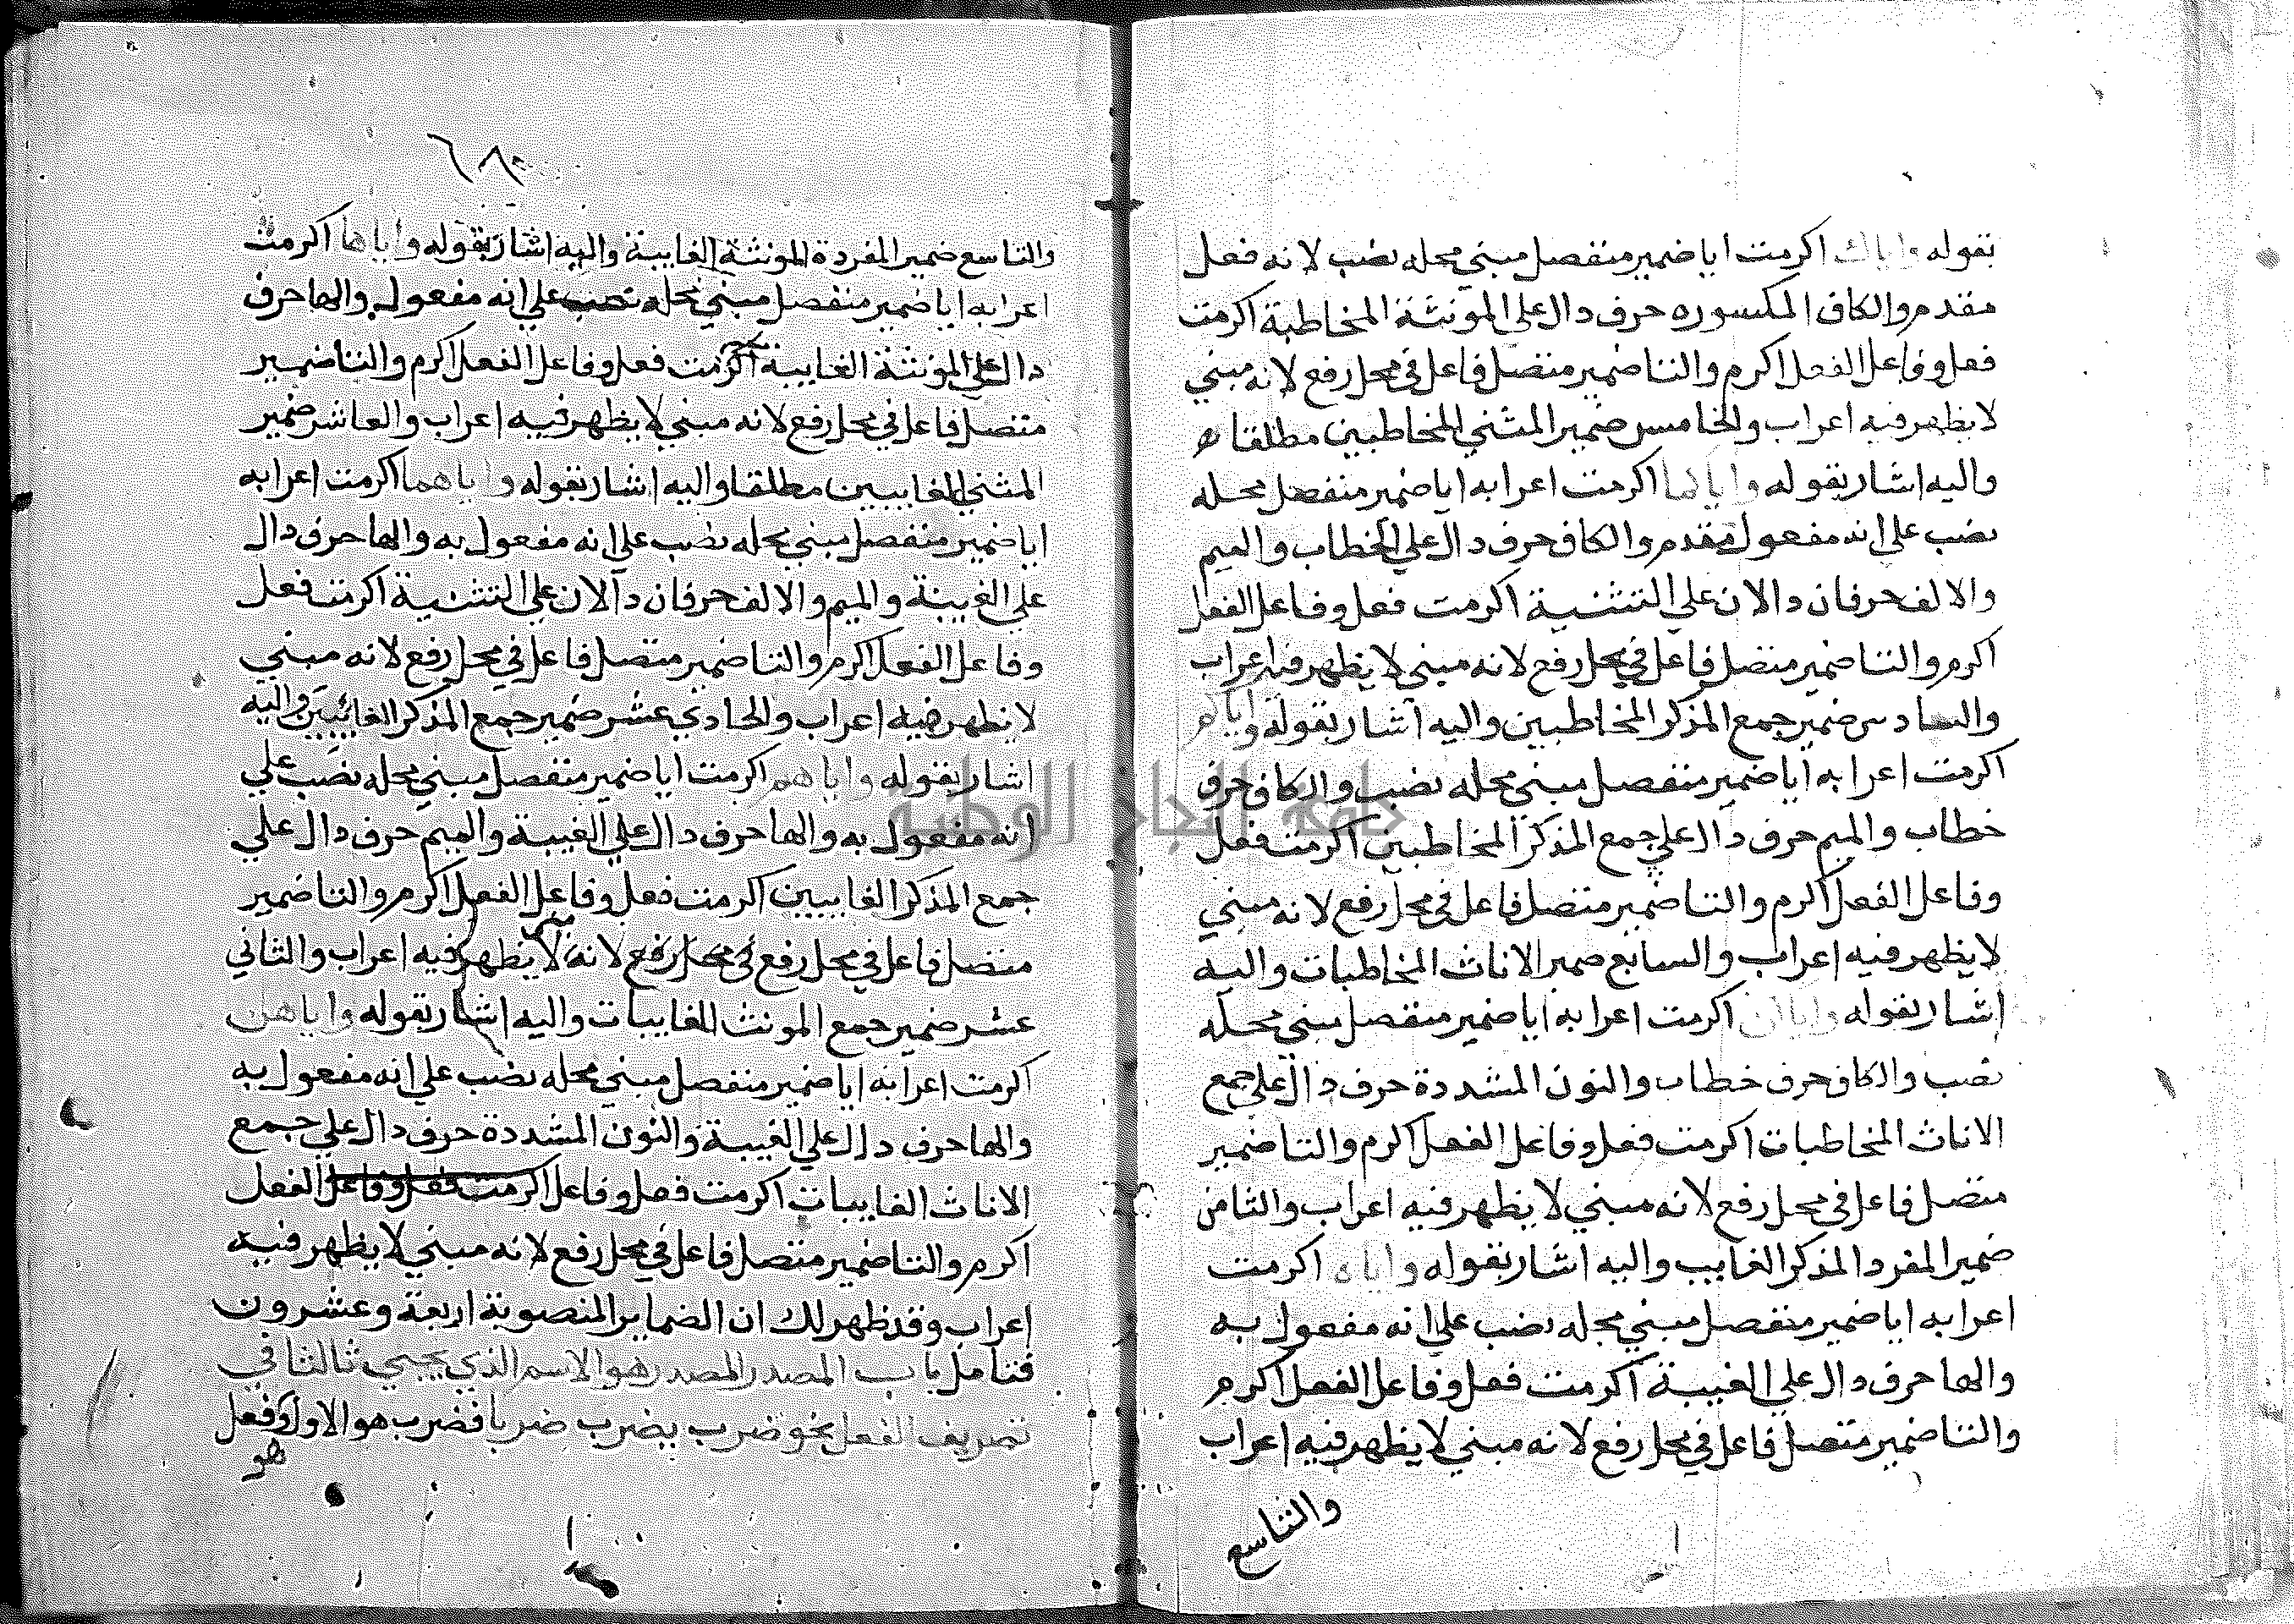 بقوله واياك اكرمت ايا ضمير منفصل مبني محله نصب لانه فعل
مقدم والكاف المكسوره حرف دال علي المونثة المخاطبة اكرمت
فعل وفاعل الفعل اكرم والتا ضمير متصل فاعل في محل رفع لانه مبني
لا يظهر فيه اعراب والخامس ضمير المثني المخاطبين مطلقا
واليه اشار بقوله واياكما اكرمت اعرابه ايا ضمير منفصل محله
نصب علي انه مفعول مقدم والكاف حرف دال علي الخطاب والميم
والالف حرفان دالان علي التثنية اكرمت فعل وفاعل الفعل
اكرم والتا ضمير متصل فاعل في محل رفع لانه مبني لا يظهر فيه اعراب
والسادس ضمير جمع المذكر المخاطبين واليه اشار بقوله واياكم
اكرمت اعرابه ايا ضمير منفصل مبني محله نصب والكاف حرف
خطاب والميم حرف دال علي جمع المذكر المخاطبين اكرمت فعل
وفاعل الفعل اكرم والتا ضمير متصل فاعل في محل رفع لانه مبني
لا يظهر فيه اعراب والسابع ضمير الاناث المخاطبات واليه
اشار بقوله واياكن اكرمت اعرابه ايا ضمير منفصل مبني محله
نصب والكاف حرف خطاب والنون المشددة حرف دال علي جمع
الاناث المخاطبات اكرمت فعل وفاعل الفعل اكرم والتا ضمير
متصل فاعل في محل رفع لانه مبني لا يظهر فيه اعراب والثامن
ضمير المفرد المذكر الغايب واليه اشار بقوله واياه اكرمت
اعرابه ايا ضمير منفصل مبني محله نصب علي انه مفعول به
والها حرف دال علي الغيبة اكرمت فعل وفاعل الفعل اكرم
والتا ضمير متصل فاعل في محل رفع لانه مبني لا يظهر فيه اعراب
والتاسع
٦٨
والتاسع ضمير المفردة المونثة الغايبة واليه اشار بقوله واياها اكرمت
اعرابه ايا ضمير منفصل مبني محله نصب علي انه مفعول والها حرف
دال علي المونثة الغايبة اكرمت فعل وفاعل الفعل اكرم والتا ضمير
متصل فاعل في محل رفع لانه مبني لا يظهر فيه اعراب والعاشر ضمير
المثني الغايبين مطلقا واليه اشار بقوله واياهما اكرمت اعرابه
ايا ضمير منفصل مبني محله نصب علي انه مفعول به والها حرف دال
علي الغيبة والميم والالف حرفان دالان علي التثنية اكرمت فعل
وفاعل الفعل اكرم والتا ضمير متصل فاعل في محل رفع لانه مبني
لا يظهر فيه اعراب والحادي عشر ضمير جمع المذكر الغائبين واليه
اشار بقوله واياهم اكرمت ايا ضمير منفصل مبني محله نصب علي
انه مفعول به والها حرف دال علي الغيبة والميم حرف دال علي
جمع المذكر الغايبين اكرمت فعل وفاعل الفعل اكرم والتا ضمير
متصل فاعل في محل رفع في محل رفع لانه مبني لا يظهر فيه اعراب والثاني
عشر ضمير جمع المونث الغايبات واليه اشار بقوله واياهن
اكرمت اعرابه ايا ضمير منفصل مبني محله نصب علي انه مفعول به
والها حرف دال علي الغيبة والنون المشددة حرف دال علي جمع
الاناث الغايبات اكرمت فعل وفاعل اكرمت فعل وفاعل الفعل
اكرم والتا ضمير متصل فاعل في محل رفع لانه مبني لا يظهر فيه
اعراب وقد ظهر لك ان الضماير المنصوبة اربعة وعشرون
فتامل باب المصدر المصدر هو الاسم الذي يجيي ثالثا في
تصريف الفعل نحو ضرب يضرب ضربا فضرب هو الاول وفعل
هو
جامعة النجاح الوطنية